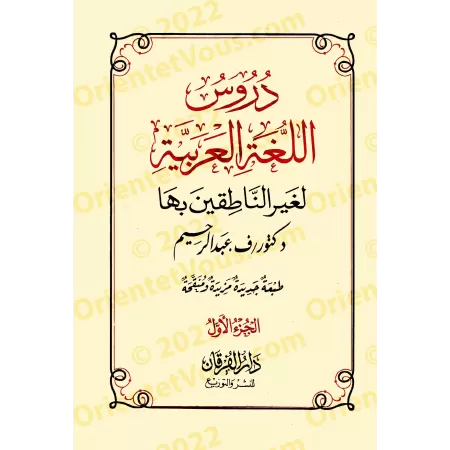 دُرُوسُ
اللُّغَةِ العَرَبِيَّةِ
لغَير النَّاطِقين بِهَا
دكتور ف. عبد الرحيم
طبْعَة جَديدَة مَزيدَة ومُنَقَّحَة
الجُزءُ الأوَّلُ
دَارُ الفُرقَان
للنشر والتوزيع
© 2022
OrientetVous.com